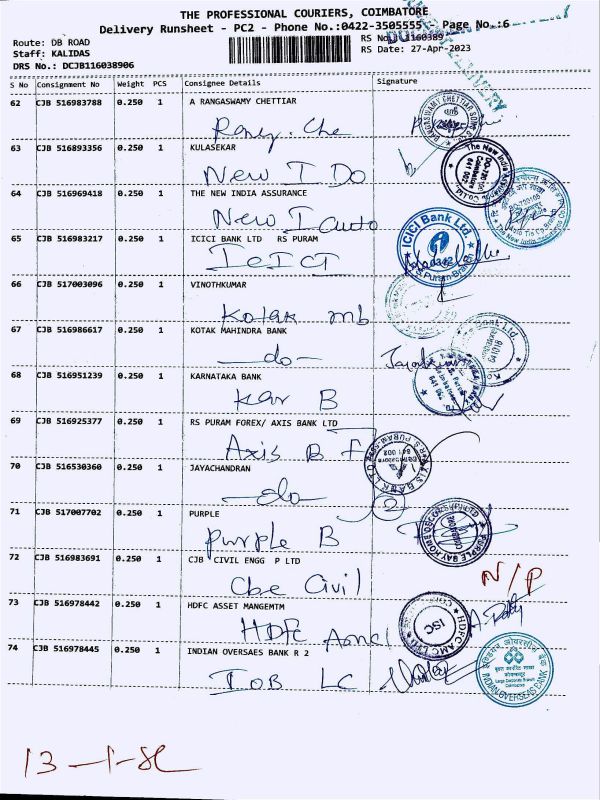 THE PROFESSIONAL COURIERS, COIMBATORE
Delivery Runsheet - PC2 - Phone No.:0422-3505555 Page No.:6
Route: DB ROAD
RS No.: 1160389
Staff: KALIDAS
RS Date: 27-Apr-2023
DRS No.: DCJB116038906
S No Consignment No Weight PCS Consignee Details Signature
62 CJB 516983788 0.250 1 A RANGASWAMY CHETTIAR
63 CJB 516893356 0.250 1 KULASEKAR
New I Do
64 CJB 516969418 0.250 1 THE NEW INDIA ASSURANCE
New I auto
65 CJB 516983217 0.250 1 ICICI BANK LTD RS PURAM
ICICI
ICICI Bank Ltd.
R.S. Puram Branch
66 CJB 517003096 0.250 1 VINOTHKUMAR
Kotak mb
67 CJB 516986617 0.250 1 KOTAK MAHINDRA BANK
-do-
68 CJB 516951239 0.250 1 KARNATAKA BANK
Kar B
69 CJB 516925377 0.250 1 RS PURAM FOREX/ AXIS BANK LTD
Axis B F
70 CJB 516530360 0.250 1 JAYACHANDRAN
-do-
2
71 CJB 517007702 0.250 1 PURPLE
Purple B
72 CJB 516983691 0.250 1 CJB CIVIL ENGG P LTD
Cbe Civil
N/P
73 CJB 516978442 0.250 1 HDFC ASSET MANGEMTM
HDFC AMC L
HDFC AMC LTD
ISC
74 CJB 516978445 0.250 1 INDIAN OVERSAES BANK R 2
IOB LC
INDIAN OVERSEAS BANK
13-1-